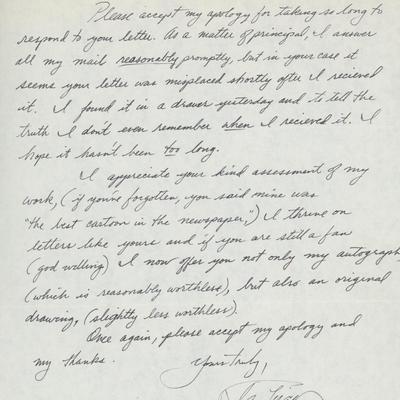 Please accept my apology for taking so long to
respond to your letter. As a matter of principal, I answer
all my mail reasonably promptly, but in your case it
seems your letter was misplaced shortly after I recieved
it. I found it in a drawer yesterday and to tell the
truth I don't even remember when I recieved it. I
hope it hasn't been too long.
I appreciate your kind assessment of my
work, (if you've forgotten, you said mine was
"the best cartoon in the newspaper",) I thrive on
letters like yours and if you are still a fan
(god willing) I now offer you not only my autograph
(which is reasonably worthless), but also an original
drawing, (slightly less worthless).
Once again, please accept my apology and
my thanks.
Yours truly,